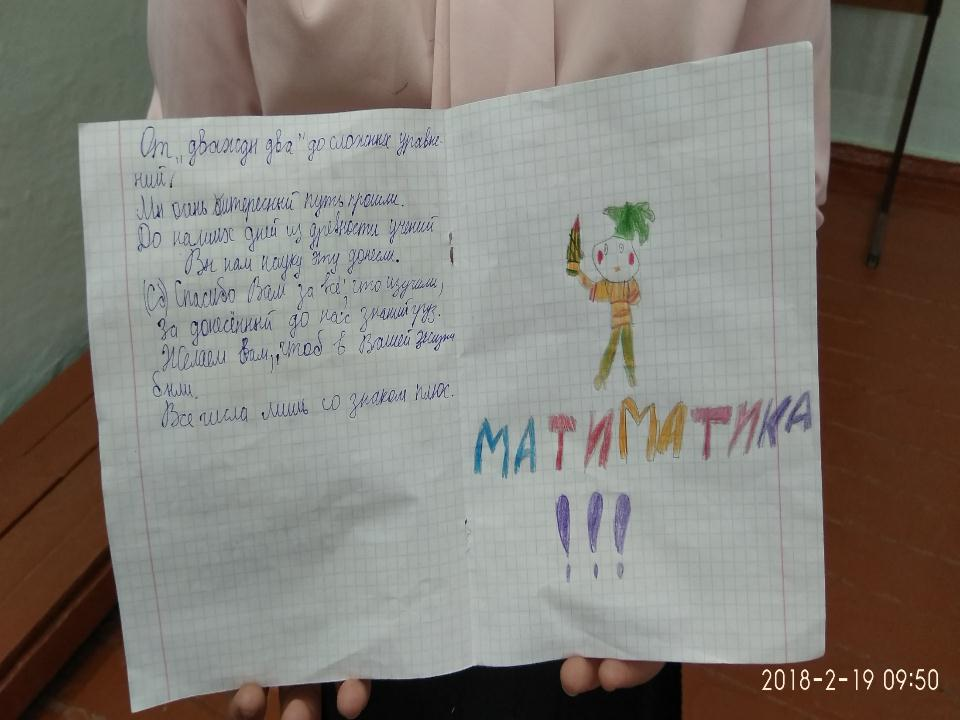 От „дважды два" до сложных уравне-
ний!
Мы очень интересный путь прошли.
До наших дней из древности учений
Вы нам науку эту донесли.
(Сд) Спасибо Вам за всё, что изучали,
За донесённый до нас знаний груз.
Желаем вам, чтоб в Вашей жизни
были.
Все числа лишь со знаком плюс.
МАТИМАТИКА
!!!
2018-2-19 09:50